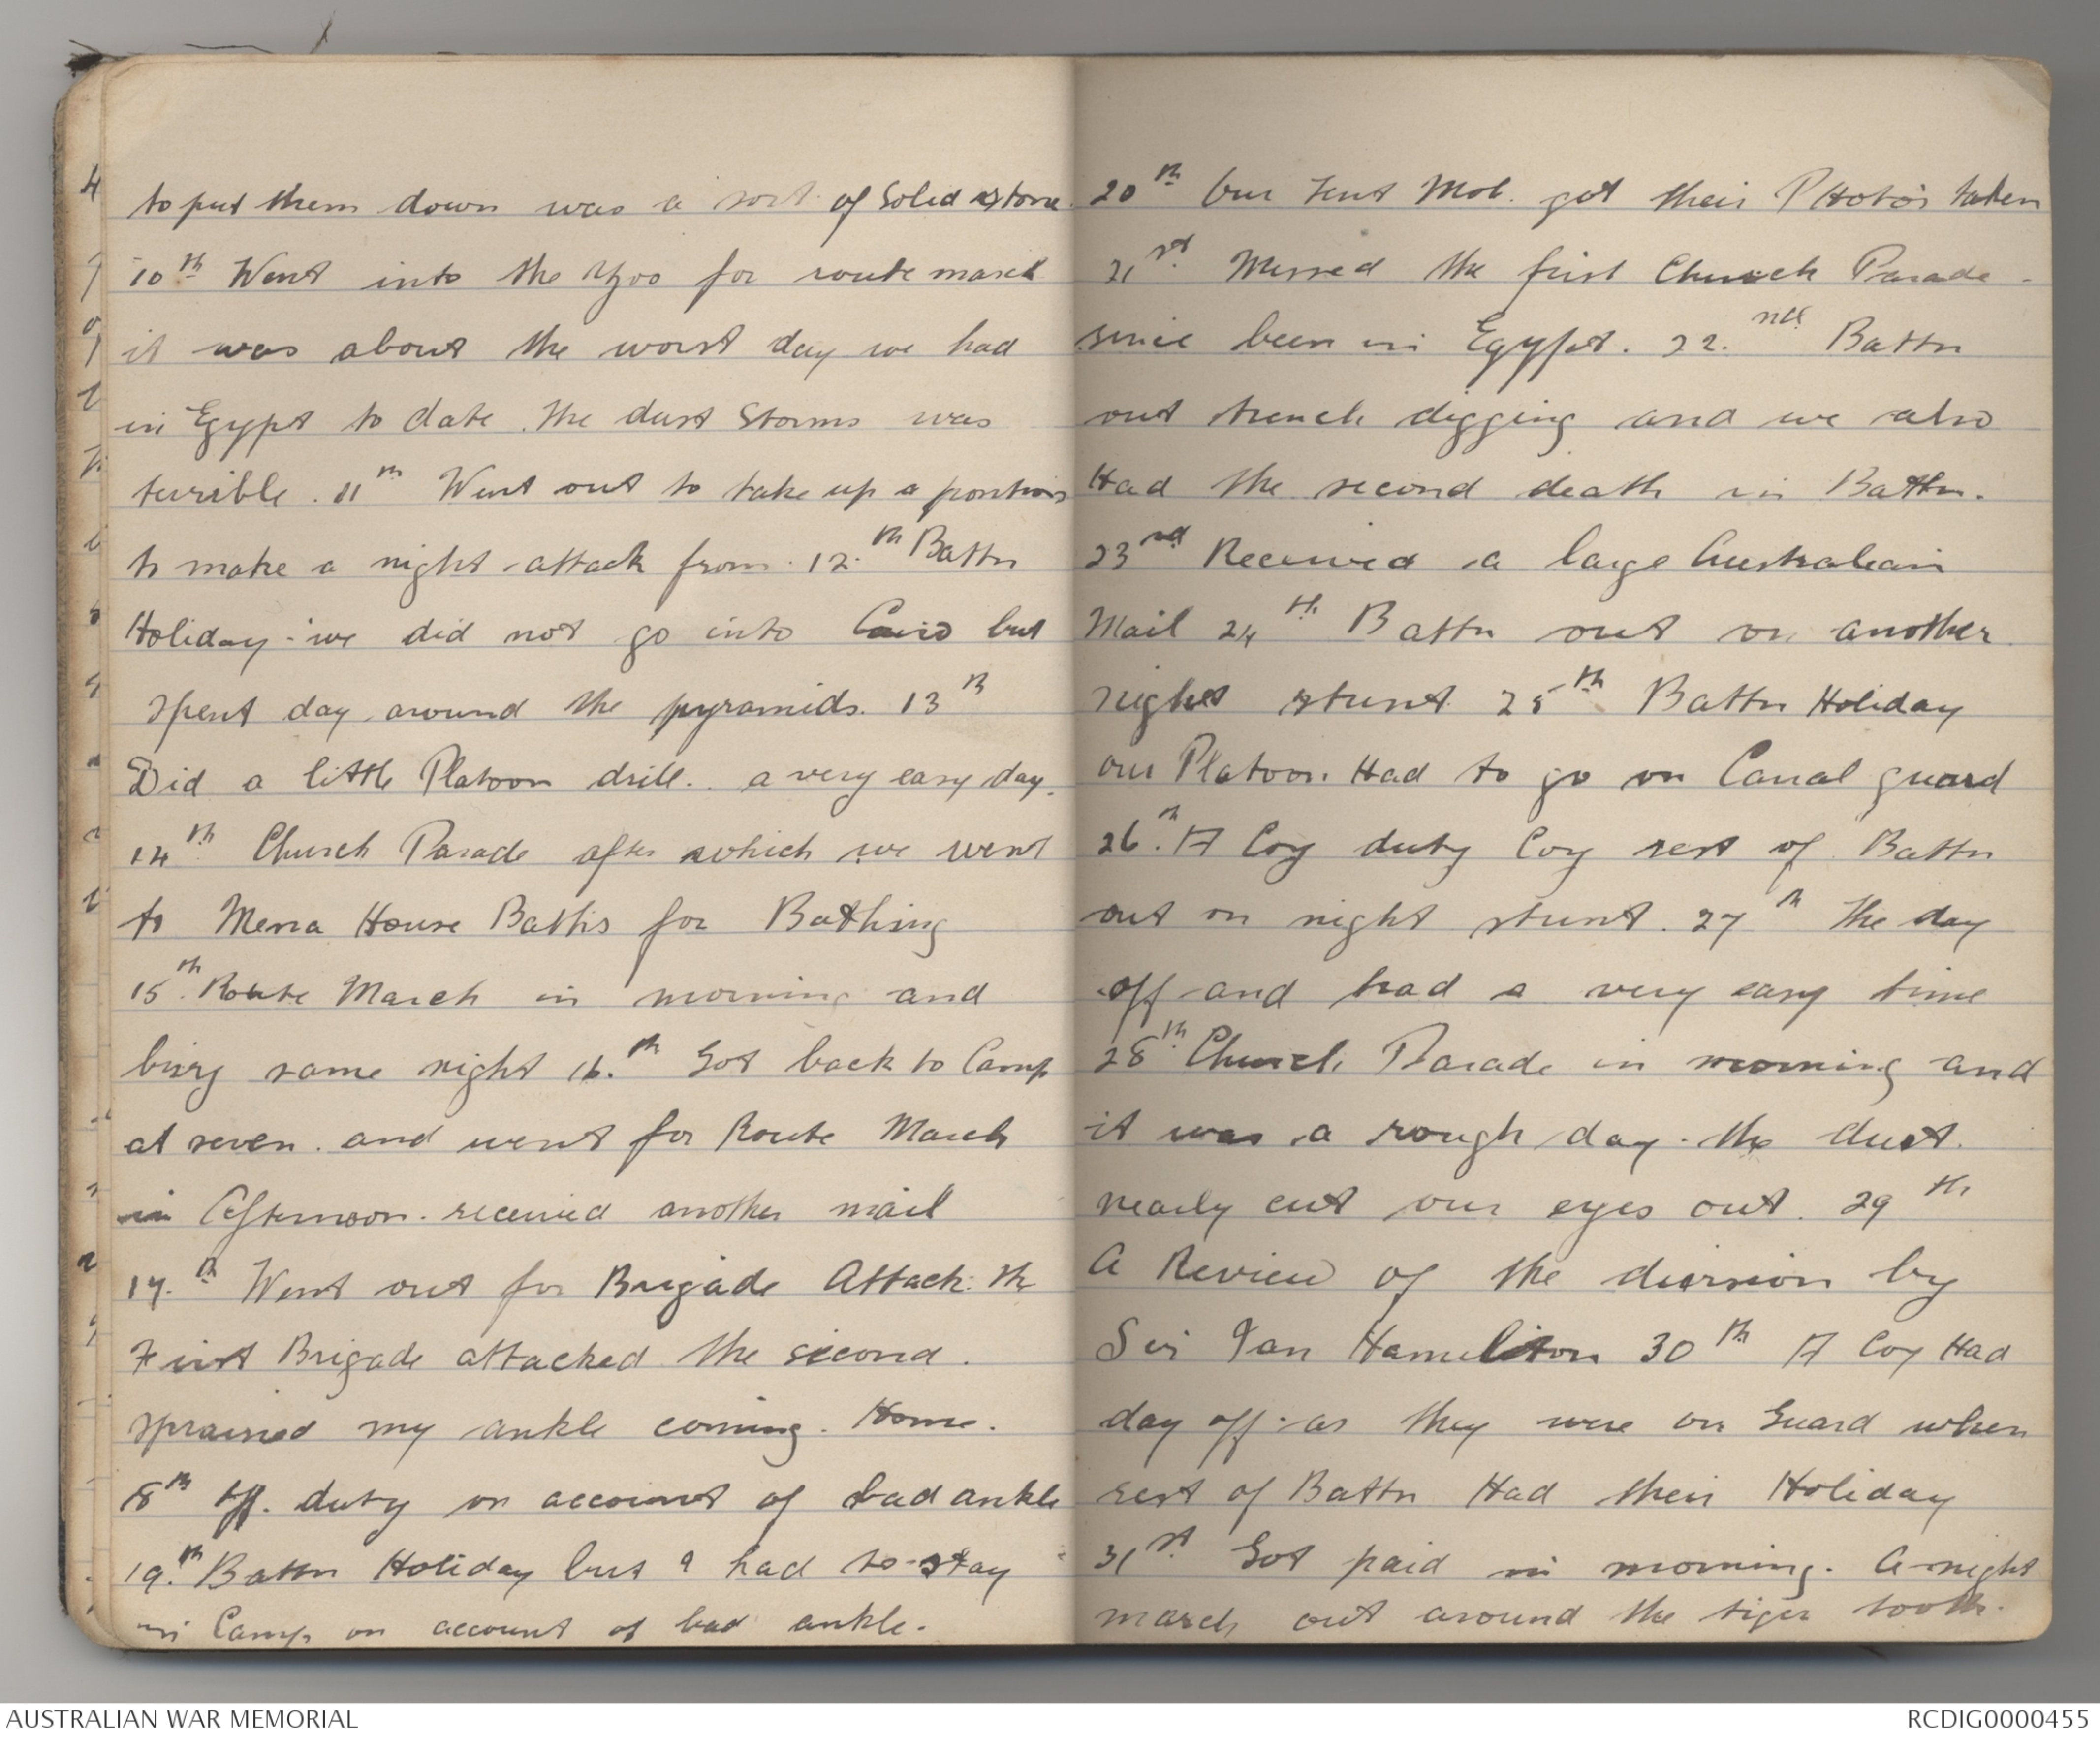 to put them down was a sort of Solid stone.
10th Went into the Zoo for route march
it was about the worst day we had
in Egypt to date. The dust Storms was
terrible. 11th Went out to take up a position
to make a night attack from. 12th Battn
Holiday - we did not go into Cairo but
spent day around the pyramids. 13th
Did a little Platoon drill. a very easy day.
14th Church Parade after which we went
to Mena House Baths for Bathing
15th Route March in morning and
bivy same night 16.th Got back to Camp
at seven. and went for Route March
in Afternoon. received another mail
17.th Went out for Brigade Attack. The
First Brigade attacked the second.
sprained my ankle coming. Home.
18th off. duty on account of bad ankle
19.th Battn Holiday but I had to stay
in Camp on account of bad ankle.
20th Our Tent Mob. got their PHoto's taken
21st Missed the first Church Parade
since been in Egypt. 22.nd Battn
out trench digging and we also
Had the second death in Battn.
23rd Received a large Australian
Mail 24th Battn out on another
night stunt. 25th Battn Holiday
our Platoon Had to go on Canal guard
26.th A Coy duty Coy rest of Battn
out on night stunt. 27th The day
off and had a very easy time
28th Church Parade in morning and
it was a rough day. the dust.
nearly cut our eyes out. 29th
A Review of the division by
Sir Ian Hamilton 30th A Coy Had
day off as they were on Guard when
rest of Battn Had their Holiday
31st Got paid in morning. A night
march out around the tiger tooth.
AUSTRALIAN WAR MEMORIAL
RCDIG0000455